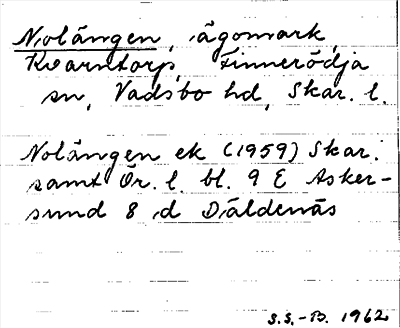 Nolängen, ägomark,
Kvarntorp, Finnerödja
sn, Vadsbo hd, Skar. l.
Nolängen ek (1959) Skar.
samt Ör. l. bl. 9 E Asker-
sund 8 d Däldenäs
S.S.-B. 1962